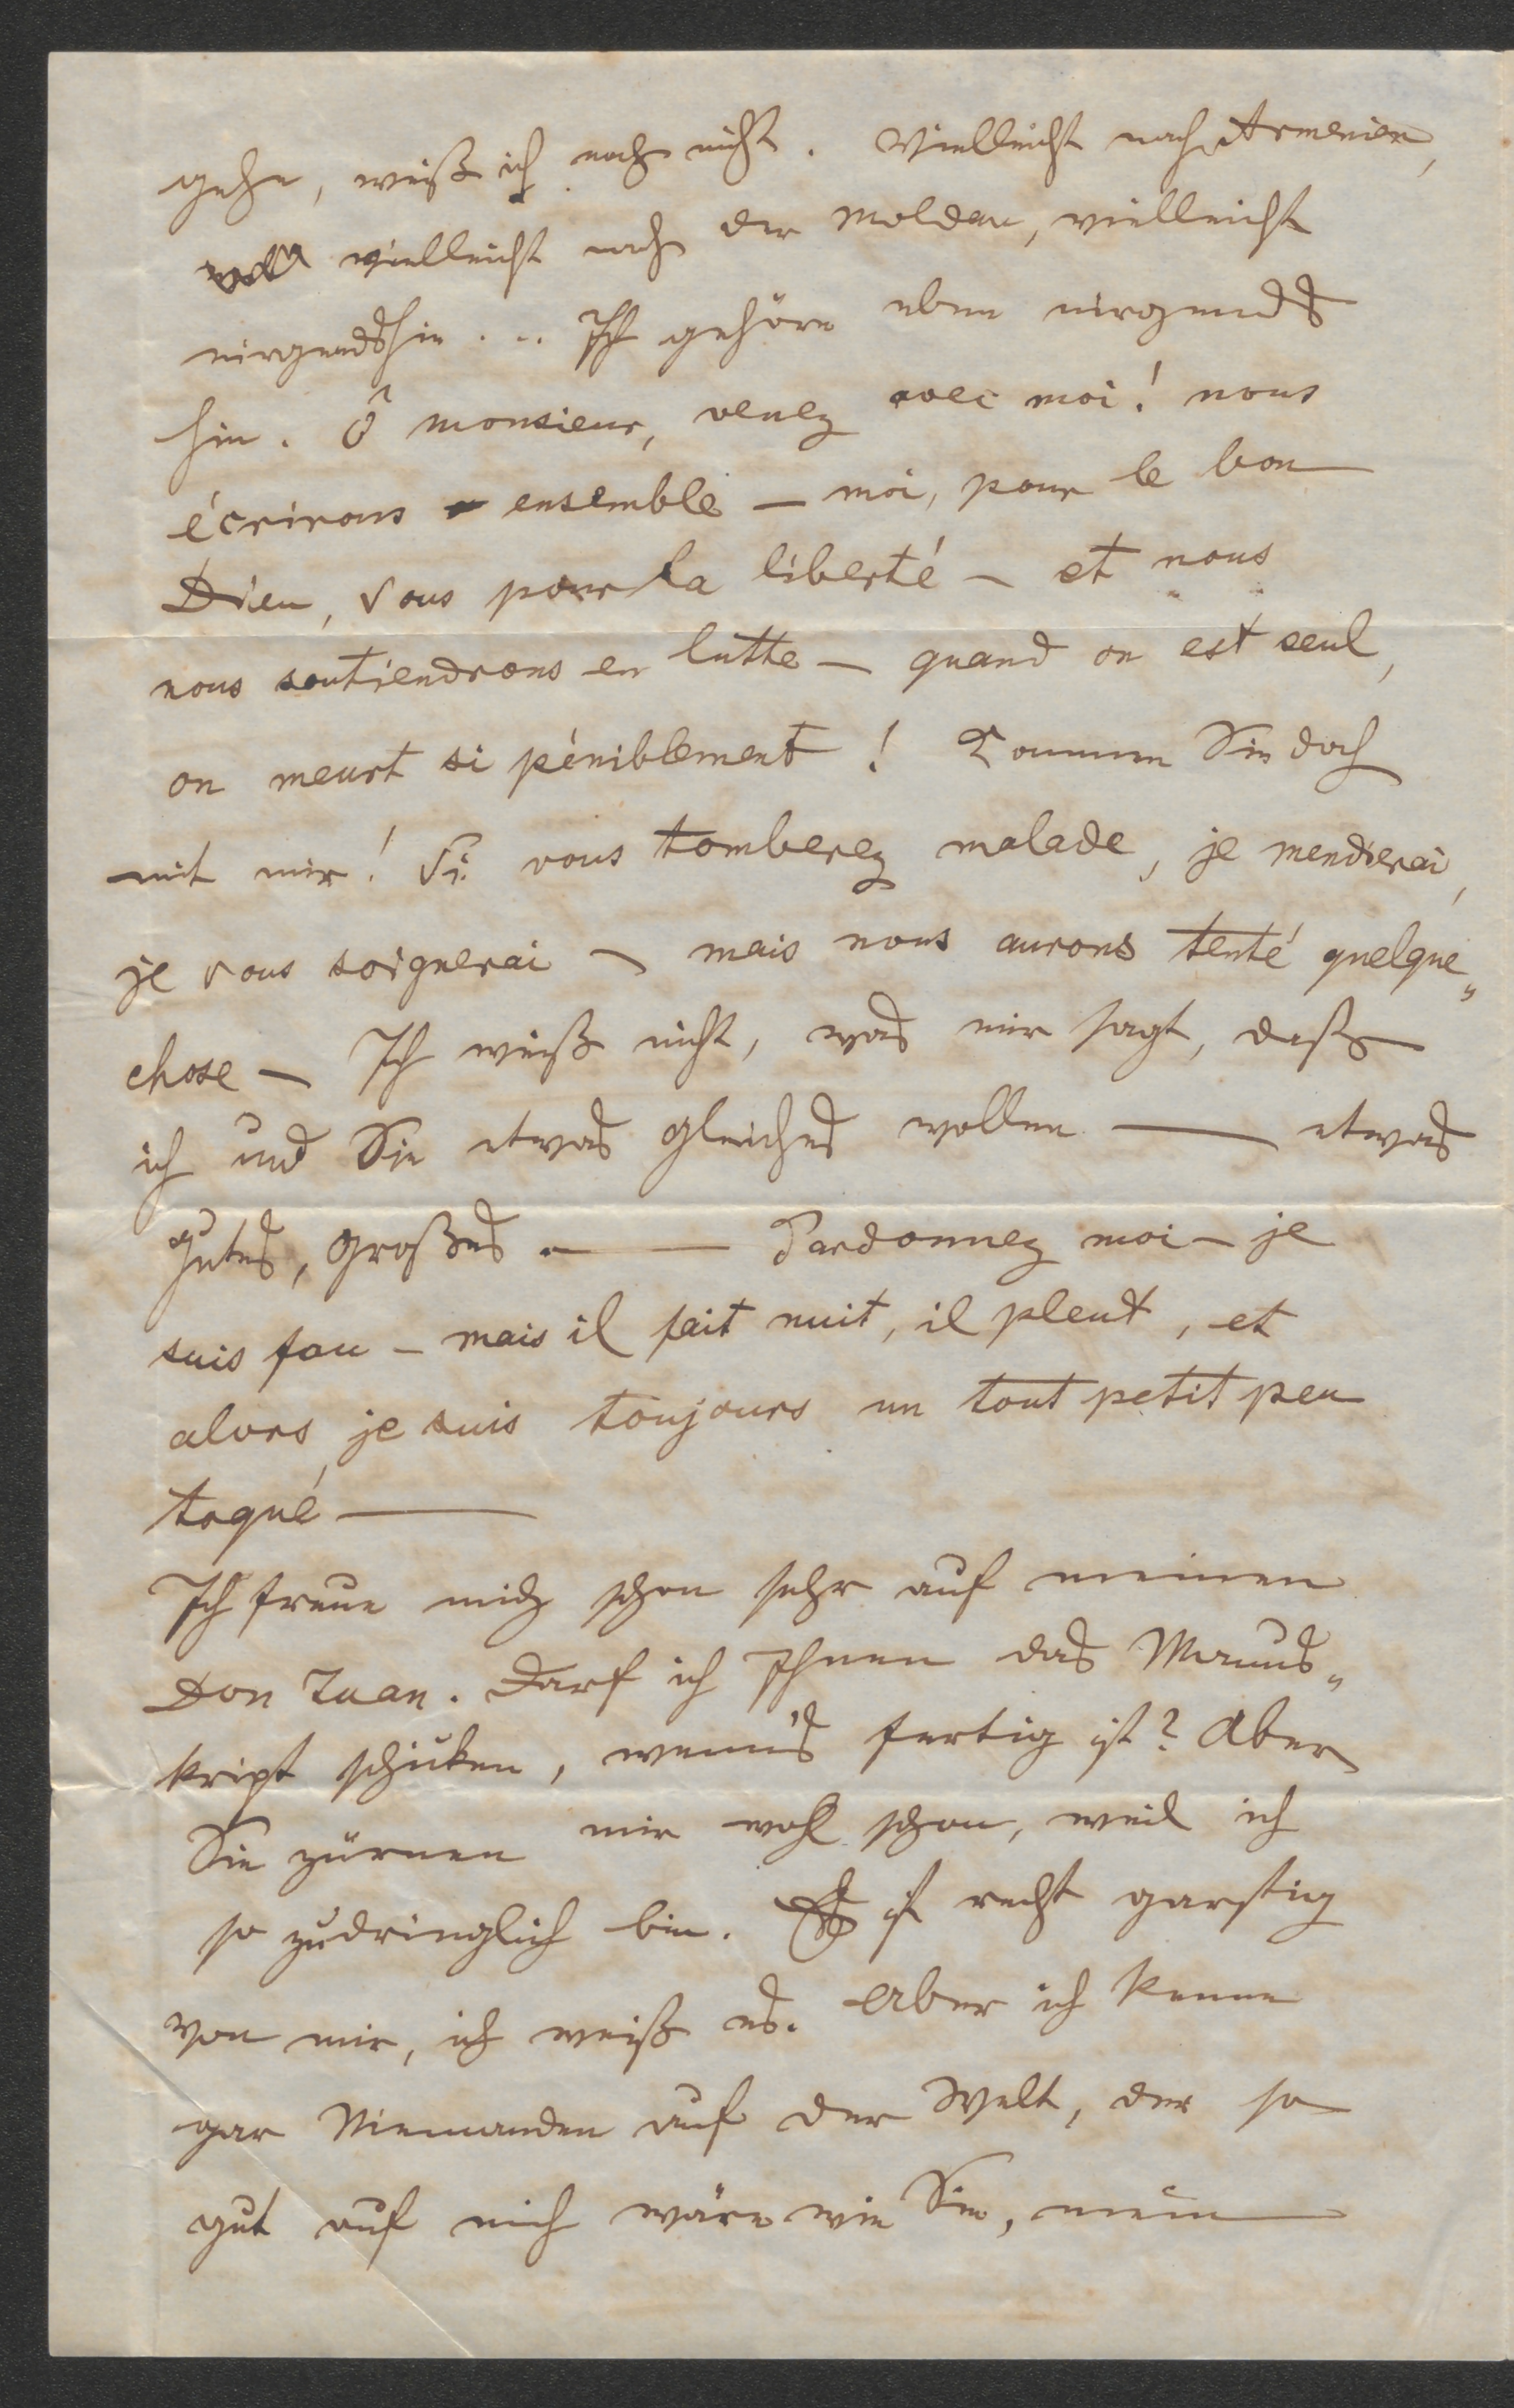 gehe, weiß ich noch nicht. Vielleicht nach Armenien,
vielleicht nach der Moldau, vielleicht
nirgendshin... Ich gehöre eben nirgends
hin. Ô monsieur, venez avec moi! nous
écrirons ensemble — moi, pour le bon
Dieu, vous pour la liberté — et nous
nous soutiendrons en lutte — quand on est seul,
on meurt si péniblement! Kommen Sie doch
mit mir! Si vous tomberez malade, je mendierai,
je vous soignerai — mais nous aurons tenté quelque„
chose — Ich weiß nicht, was mir sagt, dass
ich und Sie etwas gleiches wollen — etwas
Gutes, Großes — — Pardonnez moi — je
suis fou — mais il fait nuit, il pleut, et
alors, je suis toujours un tout petit peu
toqué —
Ich freue mich schon sehr auf meinen
Don Juan. Darf ich Ihnen das Manus„
kript schicken, wenn's fertig ist? Aber
Sie zürnen mir wohl schon, weil ich
so zudringlich bin. Es ist recht garstig
von mir, ich weiß es. Aber ich kenne
gar Niemanden auf der Welt, der so
gut auf mich wäre wie Sie, mein